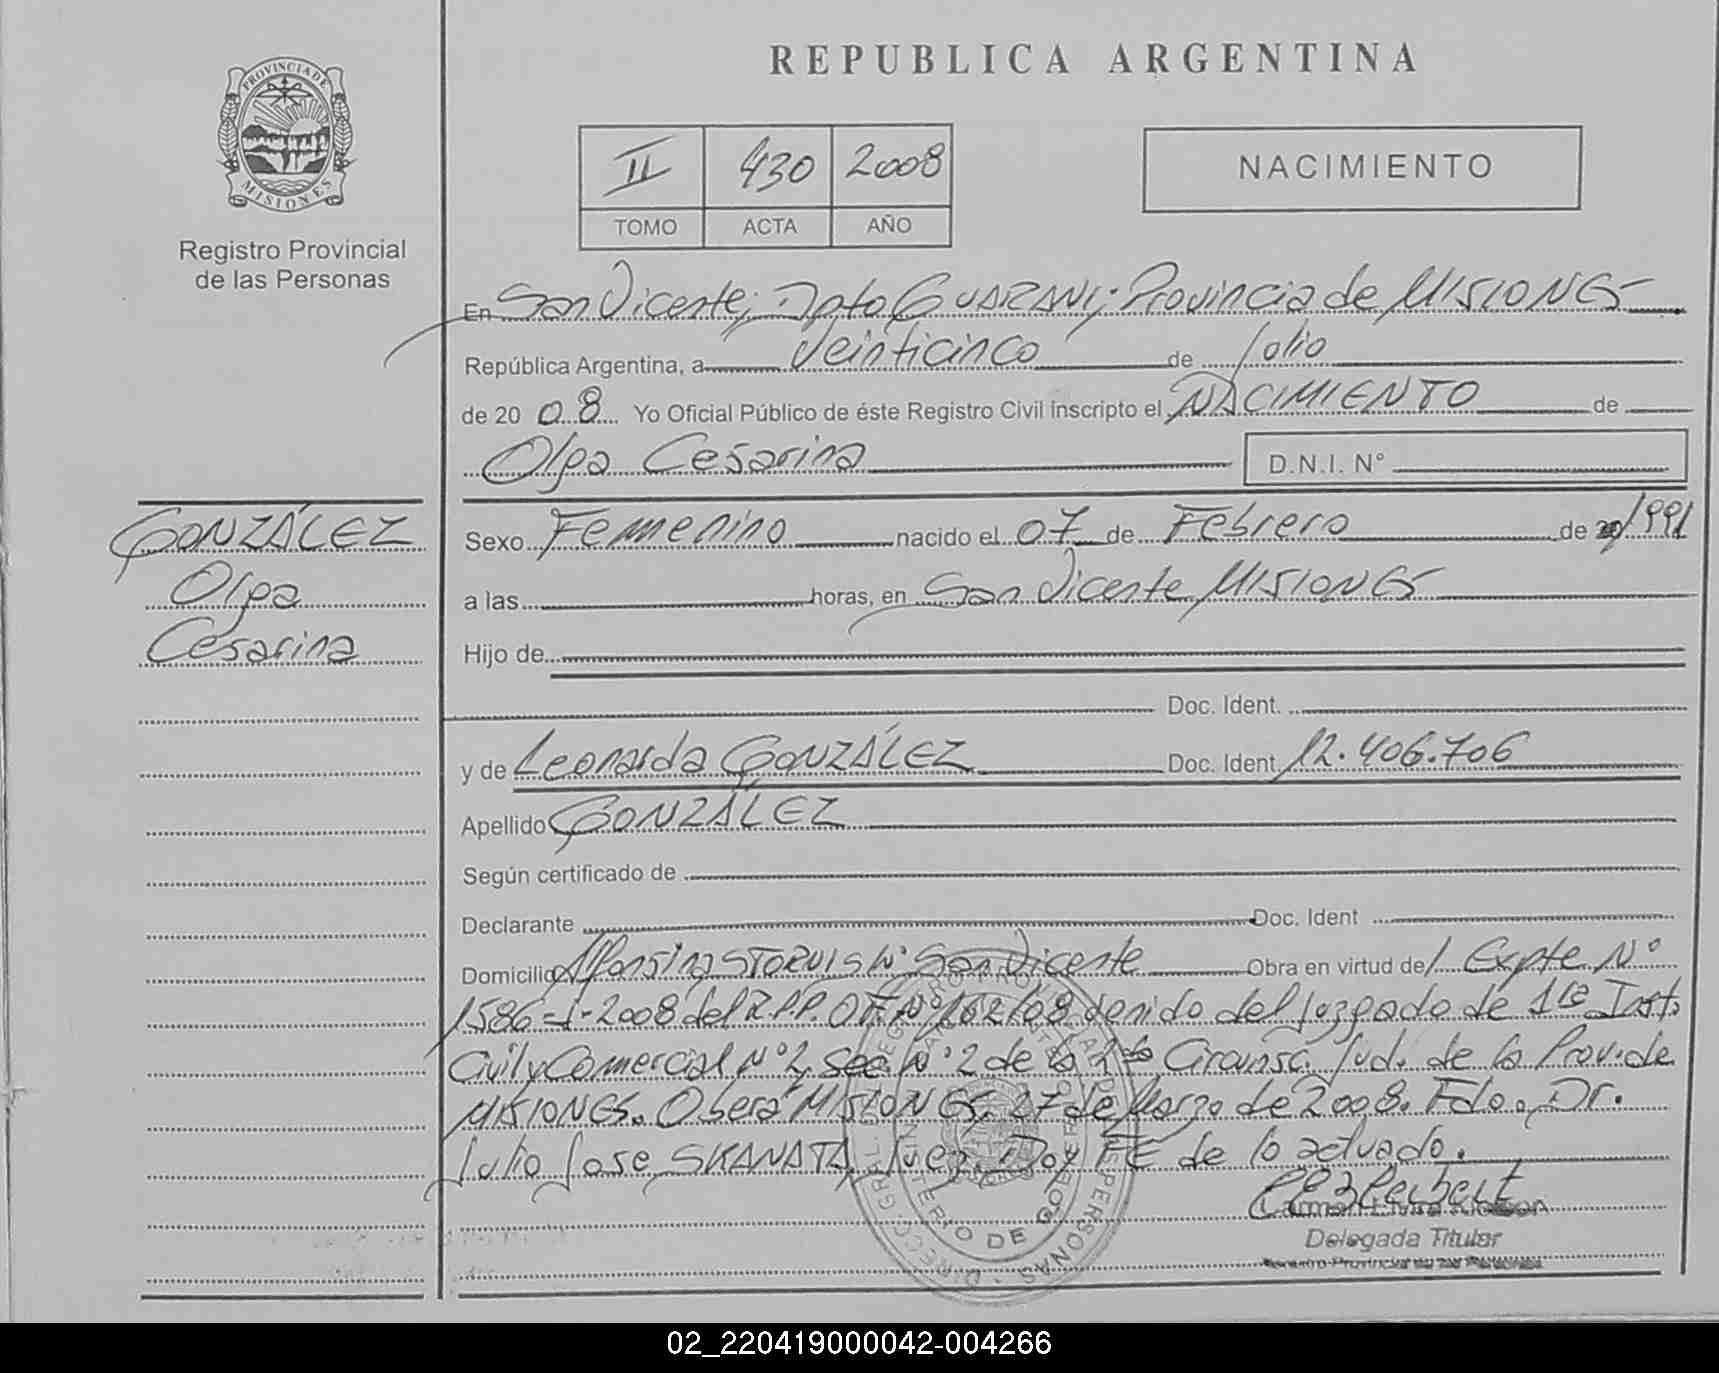 REPUBLICA ARGENTINA
PROVINCIA DE
MISIONES
Registro Provincial
de las Personas
II 430 2008
TOMO ACTA AÑO
NACIMIENTO
En San Vicente, Dpto GUARANI; Provincia de MISIONES
República Argentina, a veinticinco de Julio
de 20 08 Yo Oficial Público de éste Registro Civil inscripto el NACIMIENTO de
Olga Cesarina D.N.I. N°
GONZÁLEZ
Olga
Cesarina
Sexo Femenino nacido el 07 de Febrero de 1991
a las horas, en San Vicente MISIONES
Hijo de
Doc. Ident.
y de Leonarda GONZÁLEZ Doc. Ident. 12.406.706
Apellido GONZÁLEZ
Según certificado de
Declarante Doc. Ident
Domicilio Alfonsina STORNI S/N° San Vicente Obra en virtud de Expte N°
1586-J-2008 del R.P.P. OF. N° 162/08 venido del Juzgado de 1ra Inst.
Civil y Comercial N° 2, Sec N° 2 de la 2da Circunsc. Jud. de la Prov. de
MISIONES. Oberá MISIONES, 27 de Marzo de 2008. Fdo. Dr.
Julio Jose SKANATA, Juez. Doy FE de lo actuado.
Delegada Titular
Registro Provincial de las Personas
02_220419000042-004266